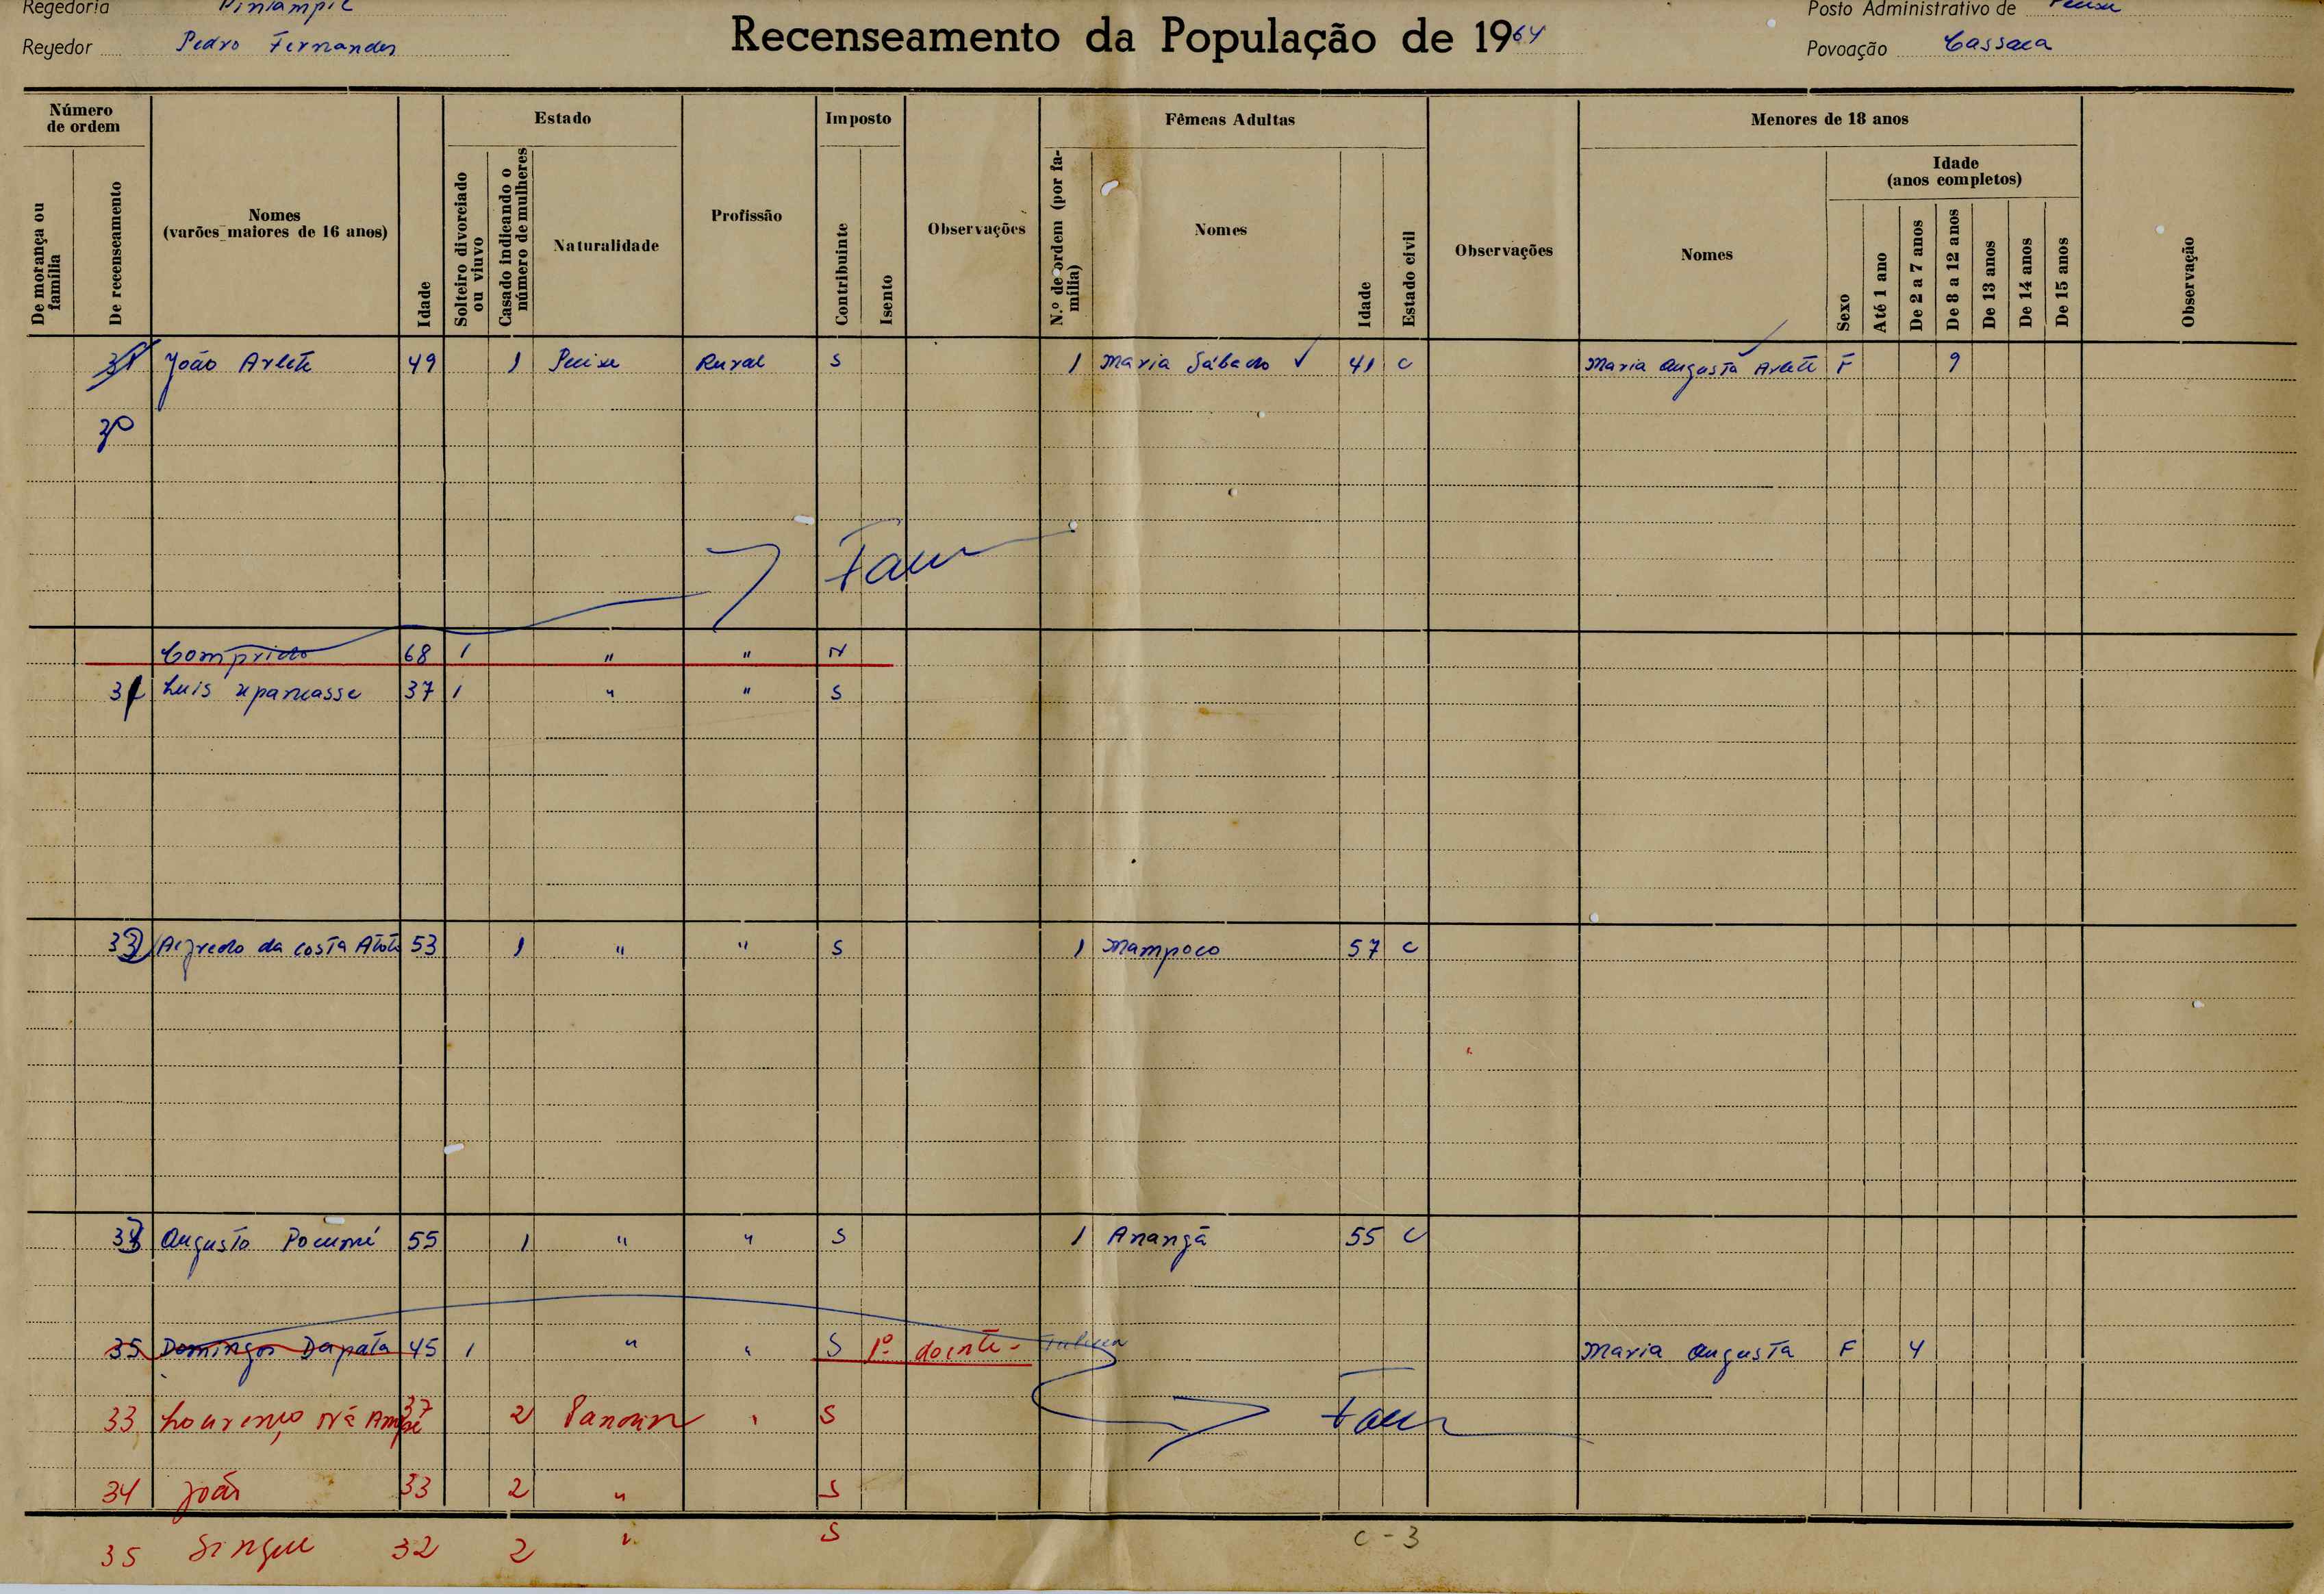 Regedoria
Regedor Pedro Fernandes
Recenseamento da População de 1964
Posto Administrativo de Pecixe
Povoação Cassaca
Número de ordem
De morança ou família
De recenseamento
Nomes
(varões maiores de 16 anos)
Idade
Estado
Solteiro divorciado ou viuvo
Casado indicando o número de mulheres
Naturalidade
Profissão
Imposto
Contribuinte
Isento
Observações
Fêmeas Adultas
N.º de ordem (por família)
Nomes
Idade
Estado civil
Observações
Menores de 18 anos
Nomes
Idade
(anos completos)
Sexo
Até 1 ano
De 2 a 7 anos
De 8 a 12 anos
De 13 anos
De 14 anos
De 15 anos
Observação
31 João Arlete 49 1 Pecixe Rural S 1 Maria Sábado ✓ 41 C Maria Augusta Arlete F 9
30
Comprido 68 1 " " N
31 Luis 37 1 " " S
33 Alfredo da Costa 53 1 " " S 1 Mampoco 57 C
Augusto 55 1 " " S 1 Anangã 55 C
35 Domingos Dapata 45 1 " " S 1º doente - Maria Augusta F 4
33 Lourenço Nã Ampé 37 2 " S
34 João 33 2 " S
35 Singue 32 2 " S
C - 3